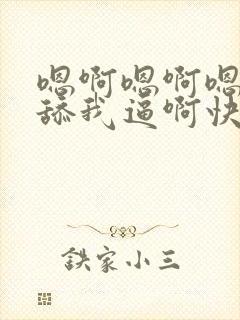 嗯啊嗯啊嗯
舔我逼啊快
鉄家小三